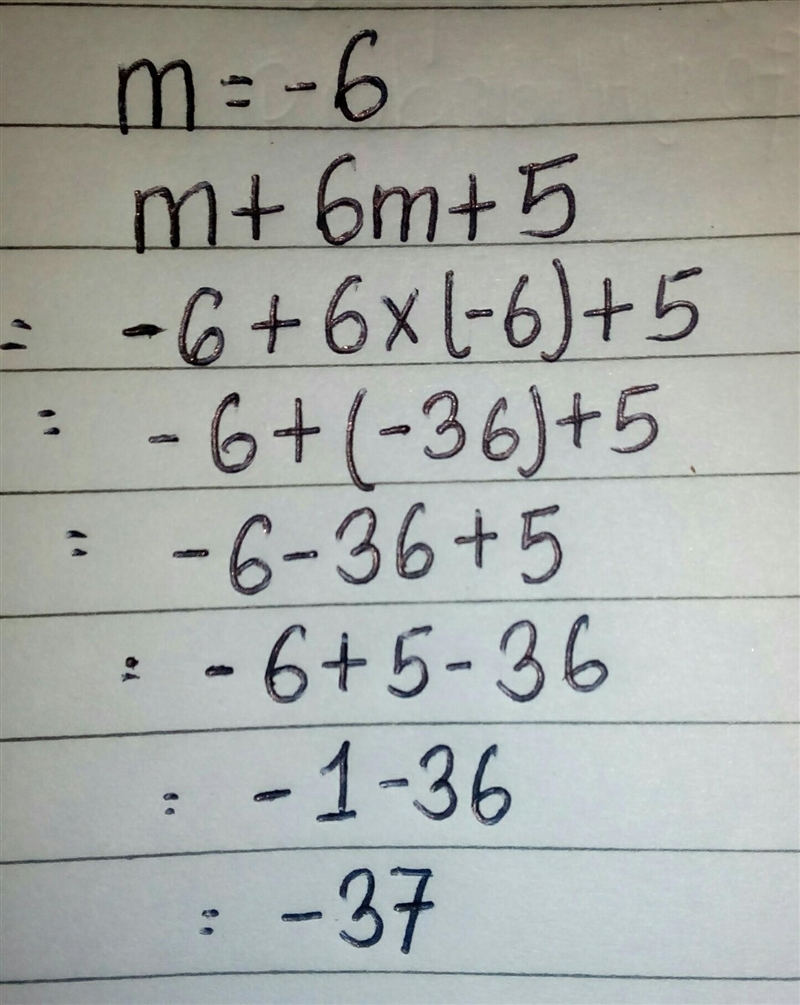 m = -6
m + 6m + 5
= -6 + 6 × (-6) + 5
= -6 + (-36) + 5
= -6 - 36 + 5
= -6 + 5 - 36
= -1 - 36
= -37